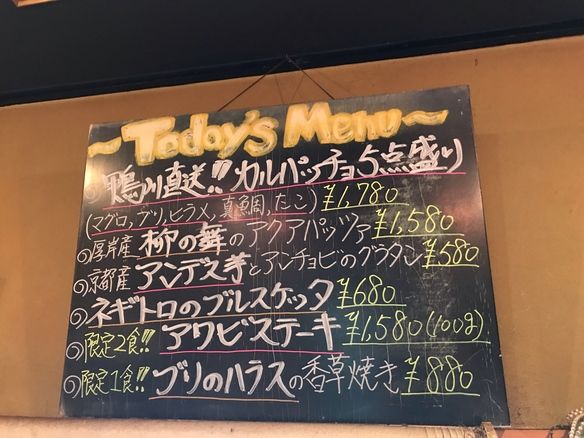 ~Today's Menu~
◎鴨川直送!! カルパッチョ5点盛り
(マグロ,ブリ,ヒラメ,真鯛,たこ) ¥1,780
◎厚岸産 柳の舞のアクアパッツァ ¥1,580
◎京都産 アンデス芋とアンチョビのグラタン ¥580
◎ネギトロのブルスケッタ ¥680
◎限定2食!! アワビステーキ ¥1,580(100g)
◎限定1食!! ブリのハラスの香草焼き ¥880